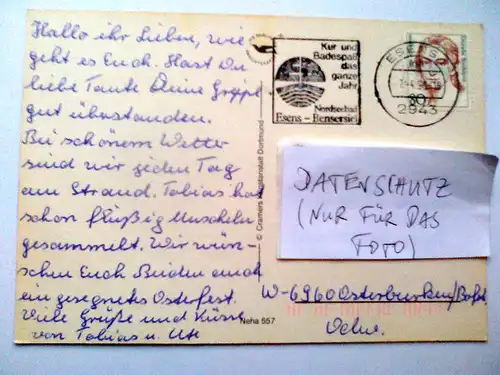 Hallo ihr Lieben, wie
geht es Euch. Hast Du
liebe Tante Deine Grippe
gut überstanden.
Bei schönem Wetter
sind wir jeden Tag
am Strand. Tobias hat
schon fleißig Muscheln
gesammelt. Wir wün-
schen Euch Beiden auch
ein gesegnetes Osterfest.
Viele Grüße und Küsse
von Tobias u. Ute
© Cramers Kunstanstalt Dortmund
Neha 557
Kur und
Badespaß
das
ganze
Jahr
Nordseebad
Esens - Bensersiel
ESENS
2943
80
DATENSCHUTZ
(NUR FÜR DAS
FOTO)
W-6960 Osterburken/